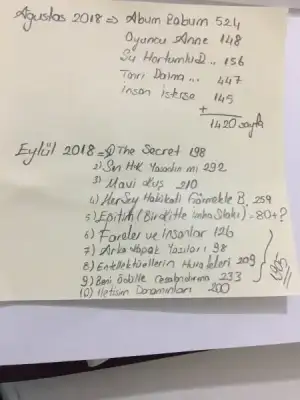 Ağustos 2018 => Abum Rabum 524
Oyuncu Anne 148
Su 156
Tanrı Daima ... 447
İnsan İsterse 145
+
1420 sayfa
Eylül 2018 => 1) The Secret 198
2) Sen Hiç Yaşadın mı 292
3) Mavi Kuş 210
4) HerŞey Hakikati Görmekle B. 259
5) Epitith (Bir Kitle İmha Silahı) - 80+?
6) Fareler ve İnsanlar 126
7) Arka Kapak Yazıları 98
8) Entellektüellerin 209
9) Beni Ödülle Cezalandırma 233
10) İletişim Donanımları 200